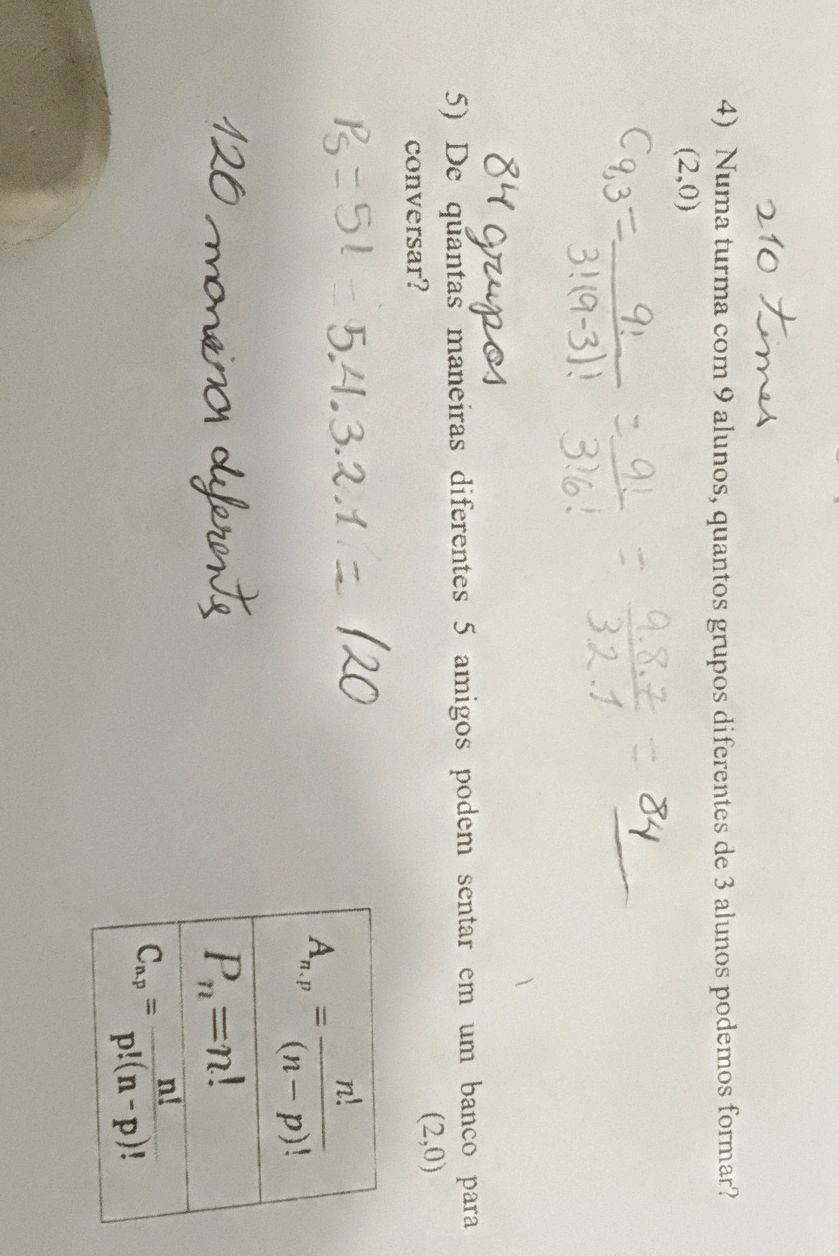 210 times
4) Numa turma com 9 alunos, quantos grupos diferentes de 3 alunos podemos formar?
(2,0)
C9,3 = 9!/3!(9-3)! = 9!/3!6! = 9.8.7/3.2.1 = 84
84 grupos
5) De quantas maneiras diferentes 5 amigos podem sentar em um banco para
conversar? (2,0)
P5 = 5! = 5.4.3.2.1 = 120
120 maneira diferente
An,p = n!/(n – p)!
Pn=n!
Cn,p = n!/p!(n - p)!